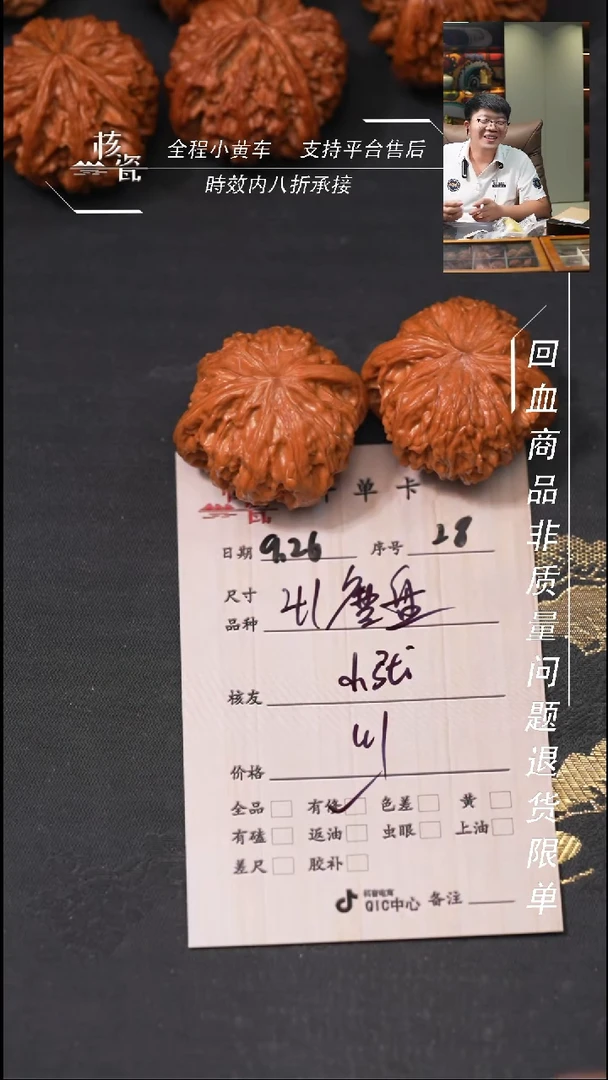 核瓷
全程小黄车 支持平台售后
時效内八折承接
回血商品非质量问题退货限单
单卡
日期 9.26 序号 28
尺寸
品种 41磨盘
核友 小张
价格
全品 有修 色差 黄
有磕 返油 虫眼 上油
差尺 胶补
抖音电商
QIC中心 备注